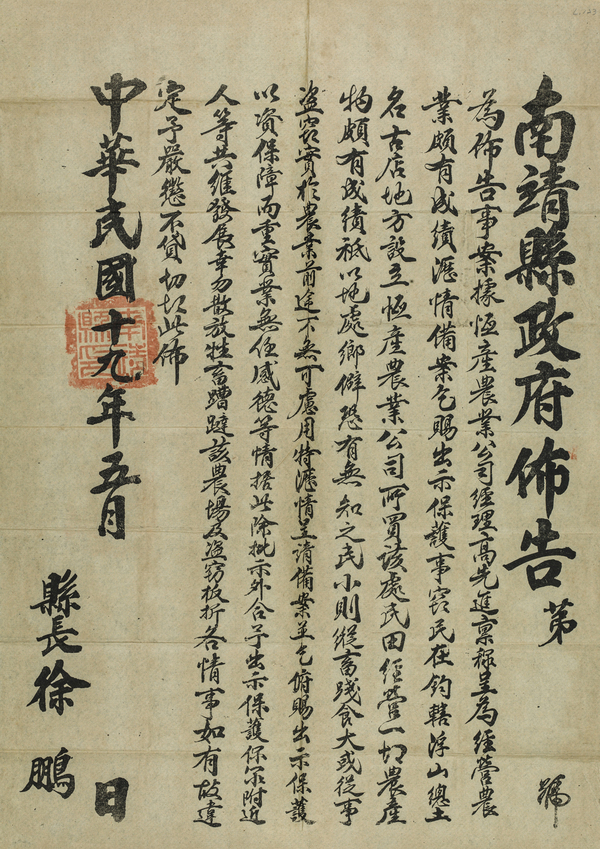 南靖縣政府佈告 第 號
為佈告事案據恆產農業公司經理高先進稟稱呈為經營農
業頗有成績瀝情備案乞賜出示保護事竊民在鈞轄浮山總土
名古居地方設立恆產農業公司所買該處民田經營一切農產
物頗有成績祗以地處鄉僻恐有無知之民小則縱畜踐食大或從事
盜竊實於農業前途不無可慮用特瀝情呈請備案並乞俯賜出示保護
以資保障而重實業無任感德等情据此除批示外合予出示保護保尔附近
人等共維發展幸勿散放牲畜蹧蹥該農場及盜竊扳折各情事如有故違
定予嚴懲不貸切切此佈
中華民國十九年五月 日
縣長徐鵬
南靖縣印